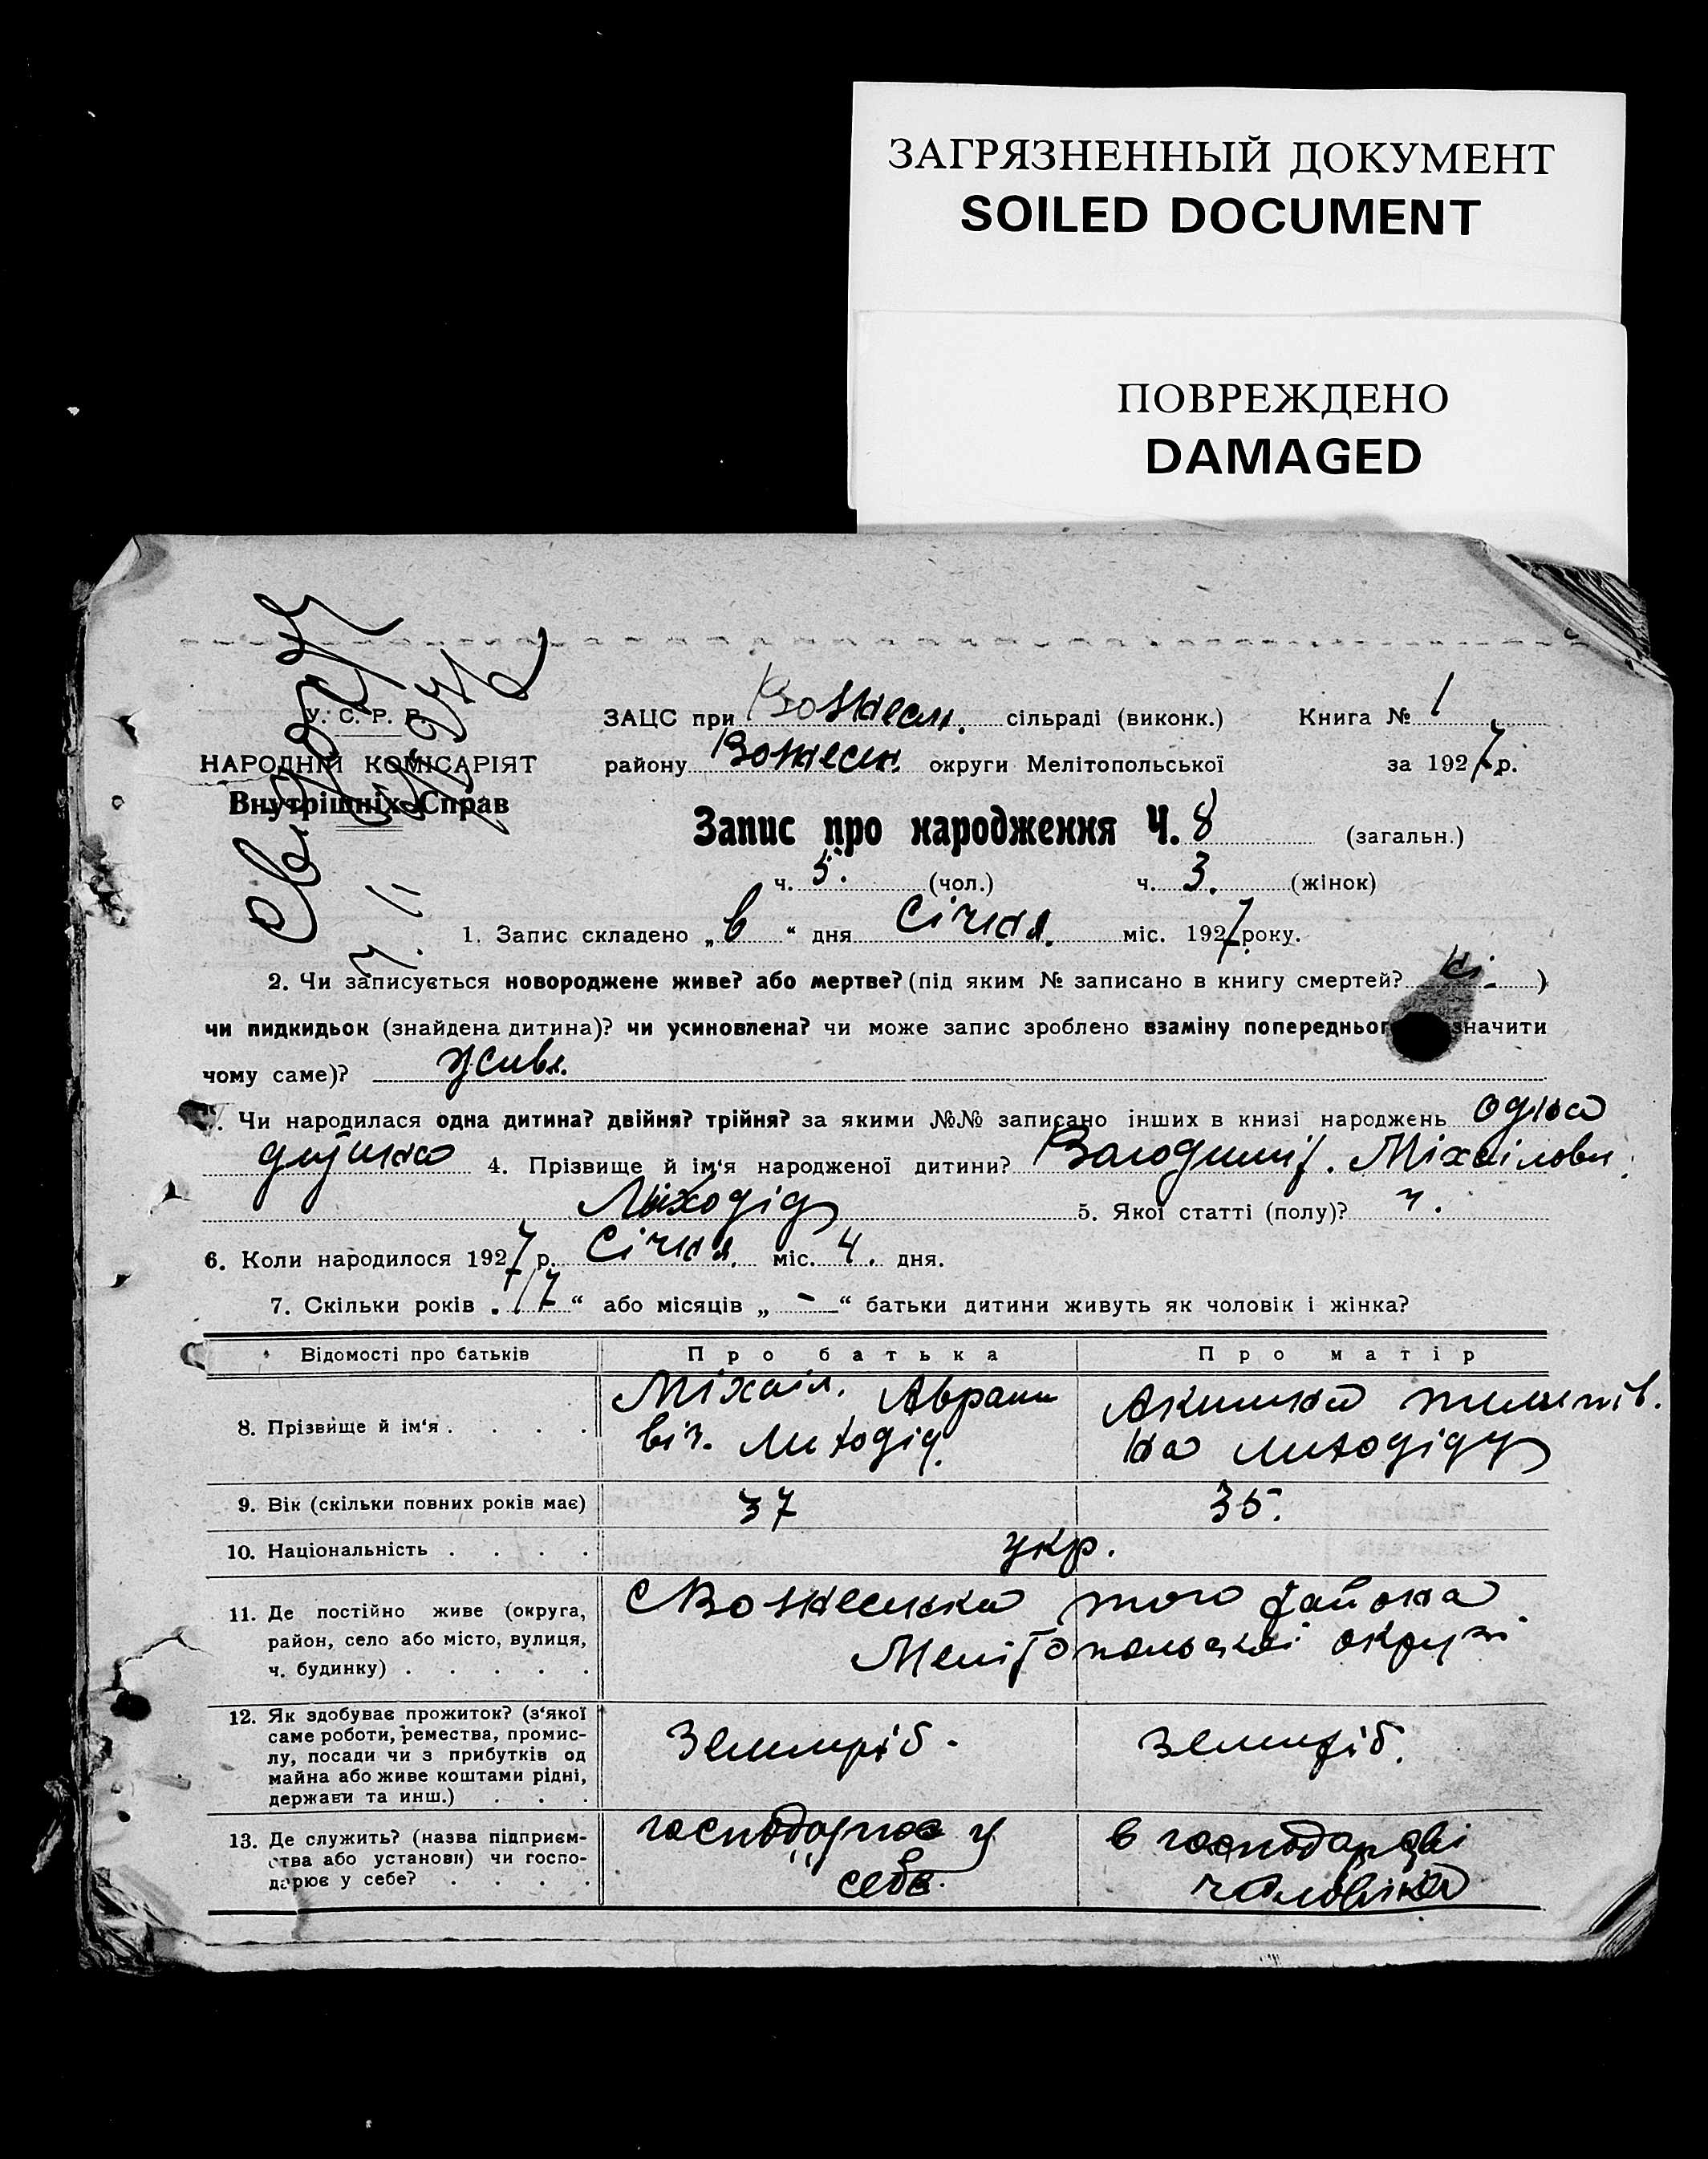 ЗАГРЯЗНЕННЫЙ ДОКУМЕНТ
SOILED DOCUMENT
ПОВРЕЖДЕНО
DAMAGED
У. С. Р. Р.
НАРОДНІЙ КОМІСАРІЯТ
Внутрішніх Справ
ЗАЦС при Вознесен. сільраді (виконк.) Книга № 1
району Вознесен. округи Мелітопольської за 1927 р.
Запис про народження Ч. 8 (загальн.)
ч. 5. (чол.) ч. 3. (жінок)
1. Запис складено „6“ дня Січня. міс. 1927 року.
2. Чи записується новороджене живе? або мертве? (під яким № записано в книгу смертей? )
чи пидкидьок (знайдена дитина)? чи усиновлена? чи може запис зроблено взаміну попередньог значити
чому саме)? живе.
Чи народилася одна дитина? двійня? трійня? за якими №№ записано інших в книзі народжень одна
дитина 4. Прізвище й ім‘я народженої дитини? Володимир. Міхайлови
Лиходід 5. Якої статті (полу)? ч.
6. Коли народилося 1927 р. Січня міс. 4. дня.
7. Скільки років „17“ або місяців „ - “ батьки дитини живуть як чоловік і жінка?
Відомості про батьків Про батька Про матір
8. Прізвище й ім‘я . . . . Міхаіл. Аврами
віч. Лиходід.
на Лиходіду
9. Вік (скільки повних років має) 37 35.
10. Національність . . . . укр.
11. Де постійно живе (округа,
район, село або місто, вулиця,
ч. будинку) . . . . .
с Вознесенка того района
Мелітопольскоі округи
12. Як здобуває прожиток? (з‘якої
саме роботи, ремества, промис-
лу, посади чи з прибутків од
майна або живе коштами рідні,
держави та инш.) . . .
Землероб. Землероб.
13. Де служить? (назва підприєм-
ства або установи) чи госпо-
дарює у себе? . . . .
господарює у
себе.
в господарстві
чоловіка